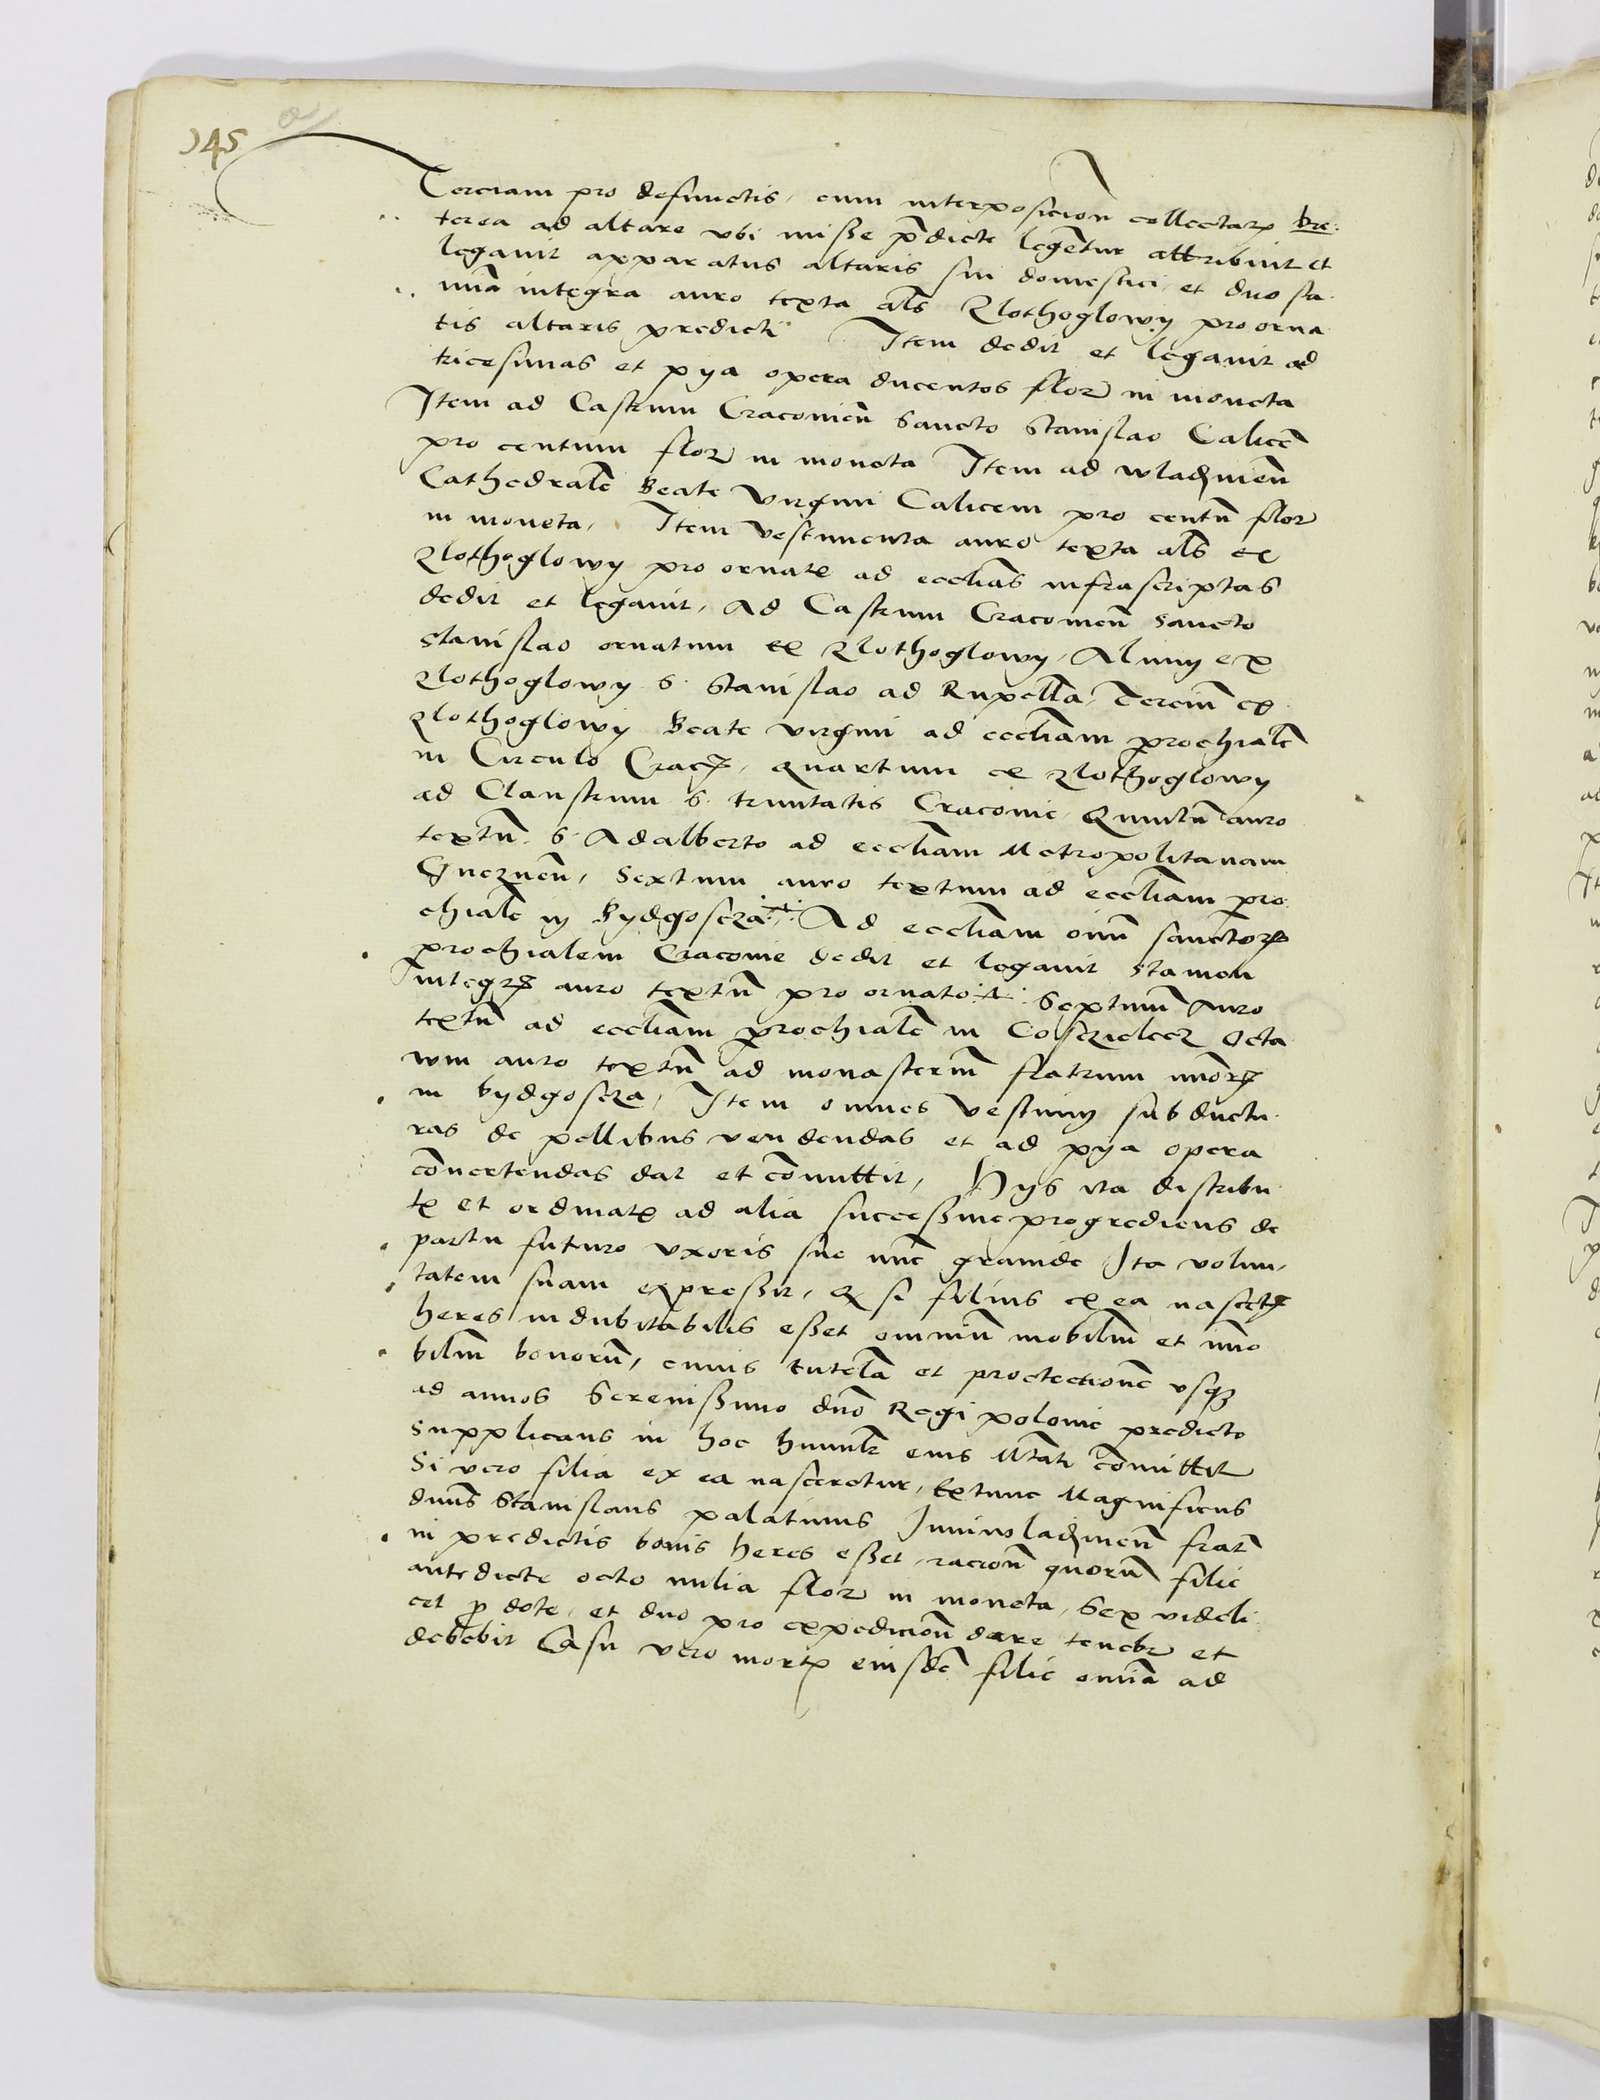 345
Terciam pro defunctis, cum interposicion̄ collectarꝝ pre:
terea ad altare vbi misse p̄dicte leḡentur attribuit et
legauit apparatus altaris sui domestici, et duo sta
mīa integra auro texta al̄s Zlothoglowy pro orna
tis altaris predicti Item dedit et legauit ad
tricesimas et pya opera ducentos flor in moneta
Item ad Castrum Cracovien̄ Sancto Stanislao Calicē
pro centum flor in moneta Item ad wladzinien̄
Cathedralē Beate Virgini Calicem pro centū flor
in moneta, Item vestimenta auro texta al̄s ex
Zlothoglowy pro ornatꝭ ad ecclīas infrascriptas
dedit et legauit, Ad Castrum Cracouien̄ sancto
Stanislao ornatum ex Zlothoglowy, Aliuꝫ ex
Zlothoglowy S. Stanislao ad Rupellā, Terciū ex
Zlothoglowy Beate virgini ad ecclīam prochialē
in Circulo Cracꝫ, quartum ex Zlothoglowy
ad Claustrum S. trinitatis Cracovie, Quintū auro
textū S. Adalberto ad ecclīam Metropolitanam
Gneznen̄, Sextum auro textum ad ecclīam pro
chialē in Bydgoscza Ad ecclīam oīm̄ sanctorꝝ
prochialem Cracovie dedit et legauit stamen
integrꝫ auro textū pro ornato Septimū Auro
textū ad ecclīam prochialē in Cosczielecz Octa
wm auro textū ad monasteriū fratrum mīorꝝ
in bydgoscza, Item omnes vestiuꝫ subductu
ras de pellibus vendendas et ad pya opera
cōuertendas dat et cōmittit, Hys ita distribu
tꝭ et ordinatꝭ ad alia successiue progrediens de
partu futuro vxoris sue nūc grauide Ita volun,
tatem suam expressit, Qꝫ si filius ex ea nascetꝛ
heres indubitabilis esset omniū mobiliū et imo
biliū bonorū, cuius tutelā et protectionē vsqꝫ
ad annos Serenissimo dn̄o Regi polonie predicto
supplicans in hoc humilr̄ eius Mtāti cōmittit
Si vero filia ex ea nasceretur, Extunc Magnificus
dn̄us Stanislaus palatinus Juniwladzinien̄ fratꝛ̄
in predictis bonis heres esset, racion̄ quorū filie
antedicte octo milia flor in moneta, Sex videli
cet p̄ dote, et duo pro expedicion̄ dare tenebr̄ et
debebit Casu vero mortꝭ eiusdē filie omīa ad